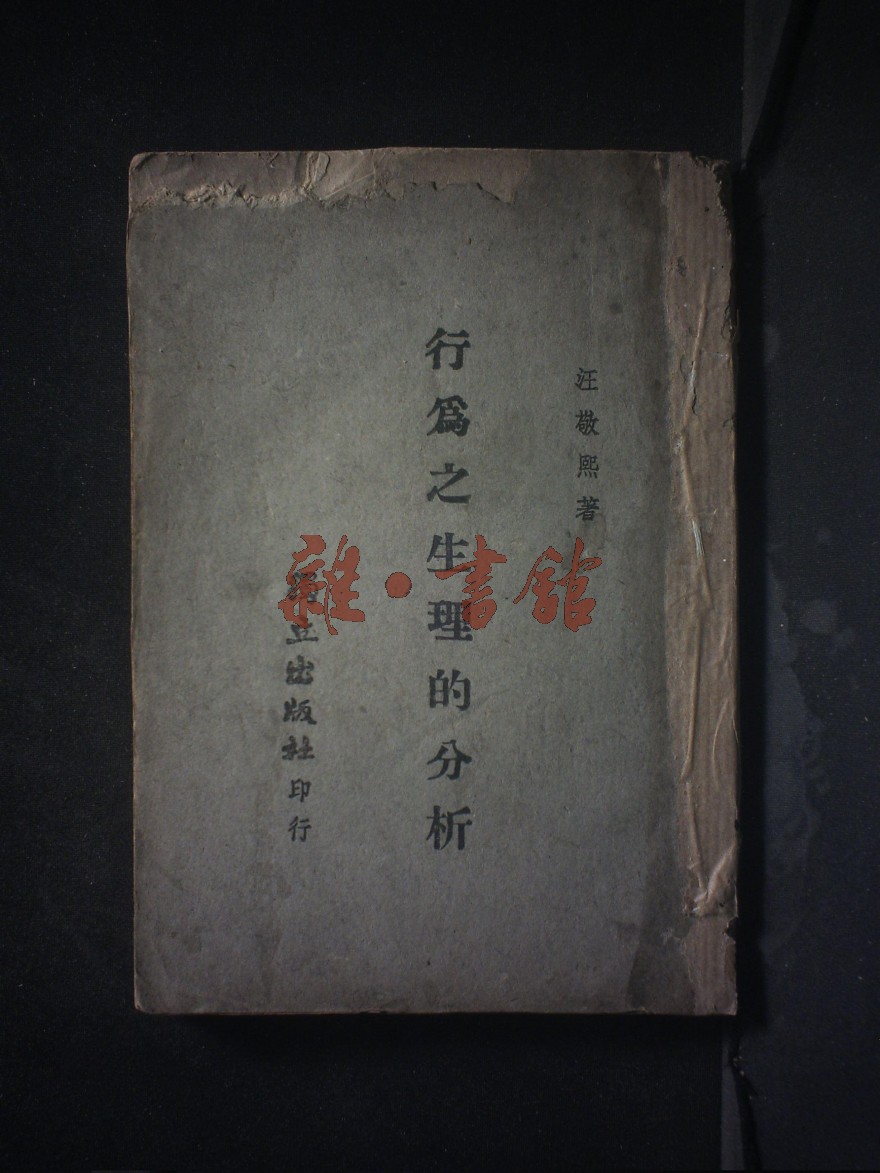 汪敬熙著
行爲之生理的分析
獨立出版社印行
雜·書館